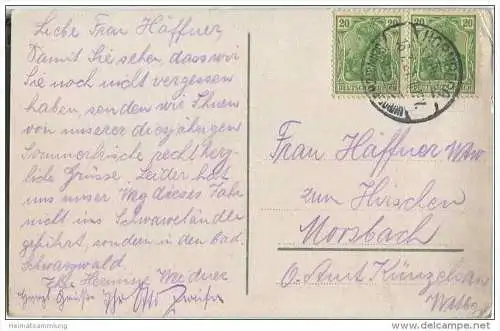 Liebe Frau Häffner,
Damit Sie sehen, dass wir
Sie noch nicht vergessen
haben, senden wir Ihnen
von unserer diesjährigen
Sommerfrische recht herz-
liche Grüsse. Leider hat
uns unser Weg dieses Jahr
nicht ins Schwaveländle
geführt, sondern in den bad.
Schwarzwald.
Ihre Hermine Weidner
20 20
Frau Häffner Wtw
zum Hirschen
Morsbach
O. Amt Künzelsau
Heimatsammlung
www.delcampe.net